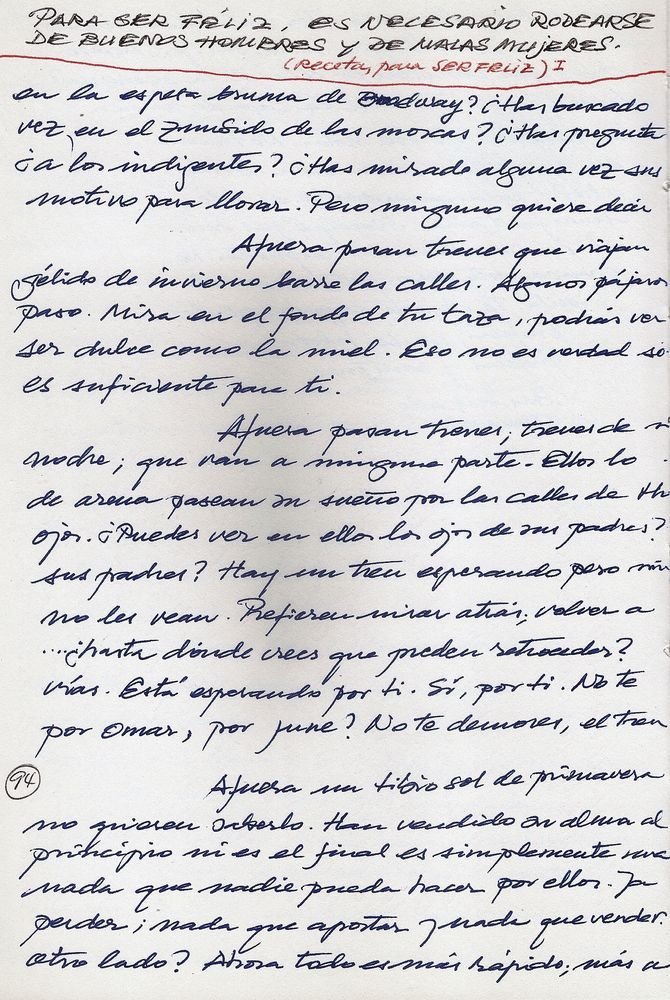 PARA SER FELIZ, ES NECESARIO RODEARSE
DE BUENOS HOMBRES Y DE MALAS MUJERES.
(Recetas para SER FELIZ) I
en la espesa bruma de Broadway? ¿Has buscado
vez, en el zumbido de las moscas? ¿Has pregunta
¿a los indigentes? ¿Has mirado alguna vez sus
motivo para llorar. Pero ninguno quiere decir
Afuera pasan trenes que viajan
gélido de invierno barre las calles. Algunos pájaros
paso. Mira en el fondo de tu taza, podrás ver
ser dulce como la miel. Eso no es verdad
es suficiente para ti.
Afuera pasan trenes; trenes de
noche; que van a ninguna parte. Ellos lo
de arena pasean su sueño por las calles de
ojos. ¿Puedes ver en ellos los ojos de sus padres?
sus padres? Hay un tren esperando pero
no les vean. Prefieren mirar atrás; volver a
....¿hasta dónde crees que pueden retroceder?
vías. Está esperando por ti. Sí, por ti. No te
por Omar, por June? No te demores, el tren
94
Afuera un tibio sol de primavera
no quieren saberlo. Han vendido su alma al
principio ni es el final es simplemente
nada que nadie pueda hacer por ellos. Ya
perder; nada que apostar y nada que vender.
otro lado? Ahora todo es más rápido; más